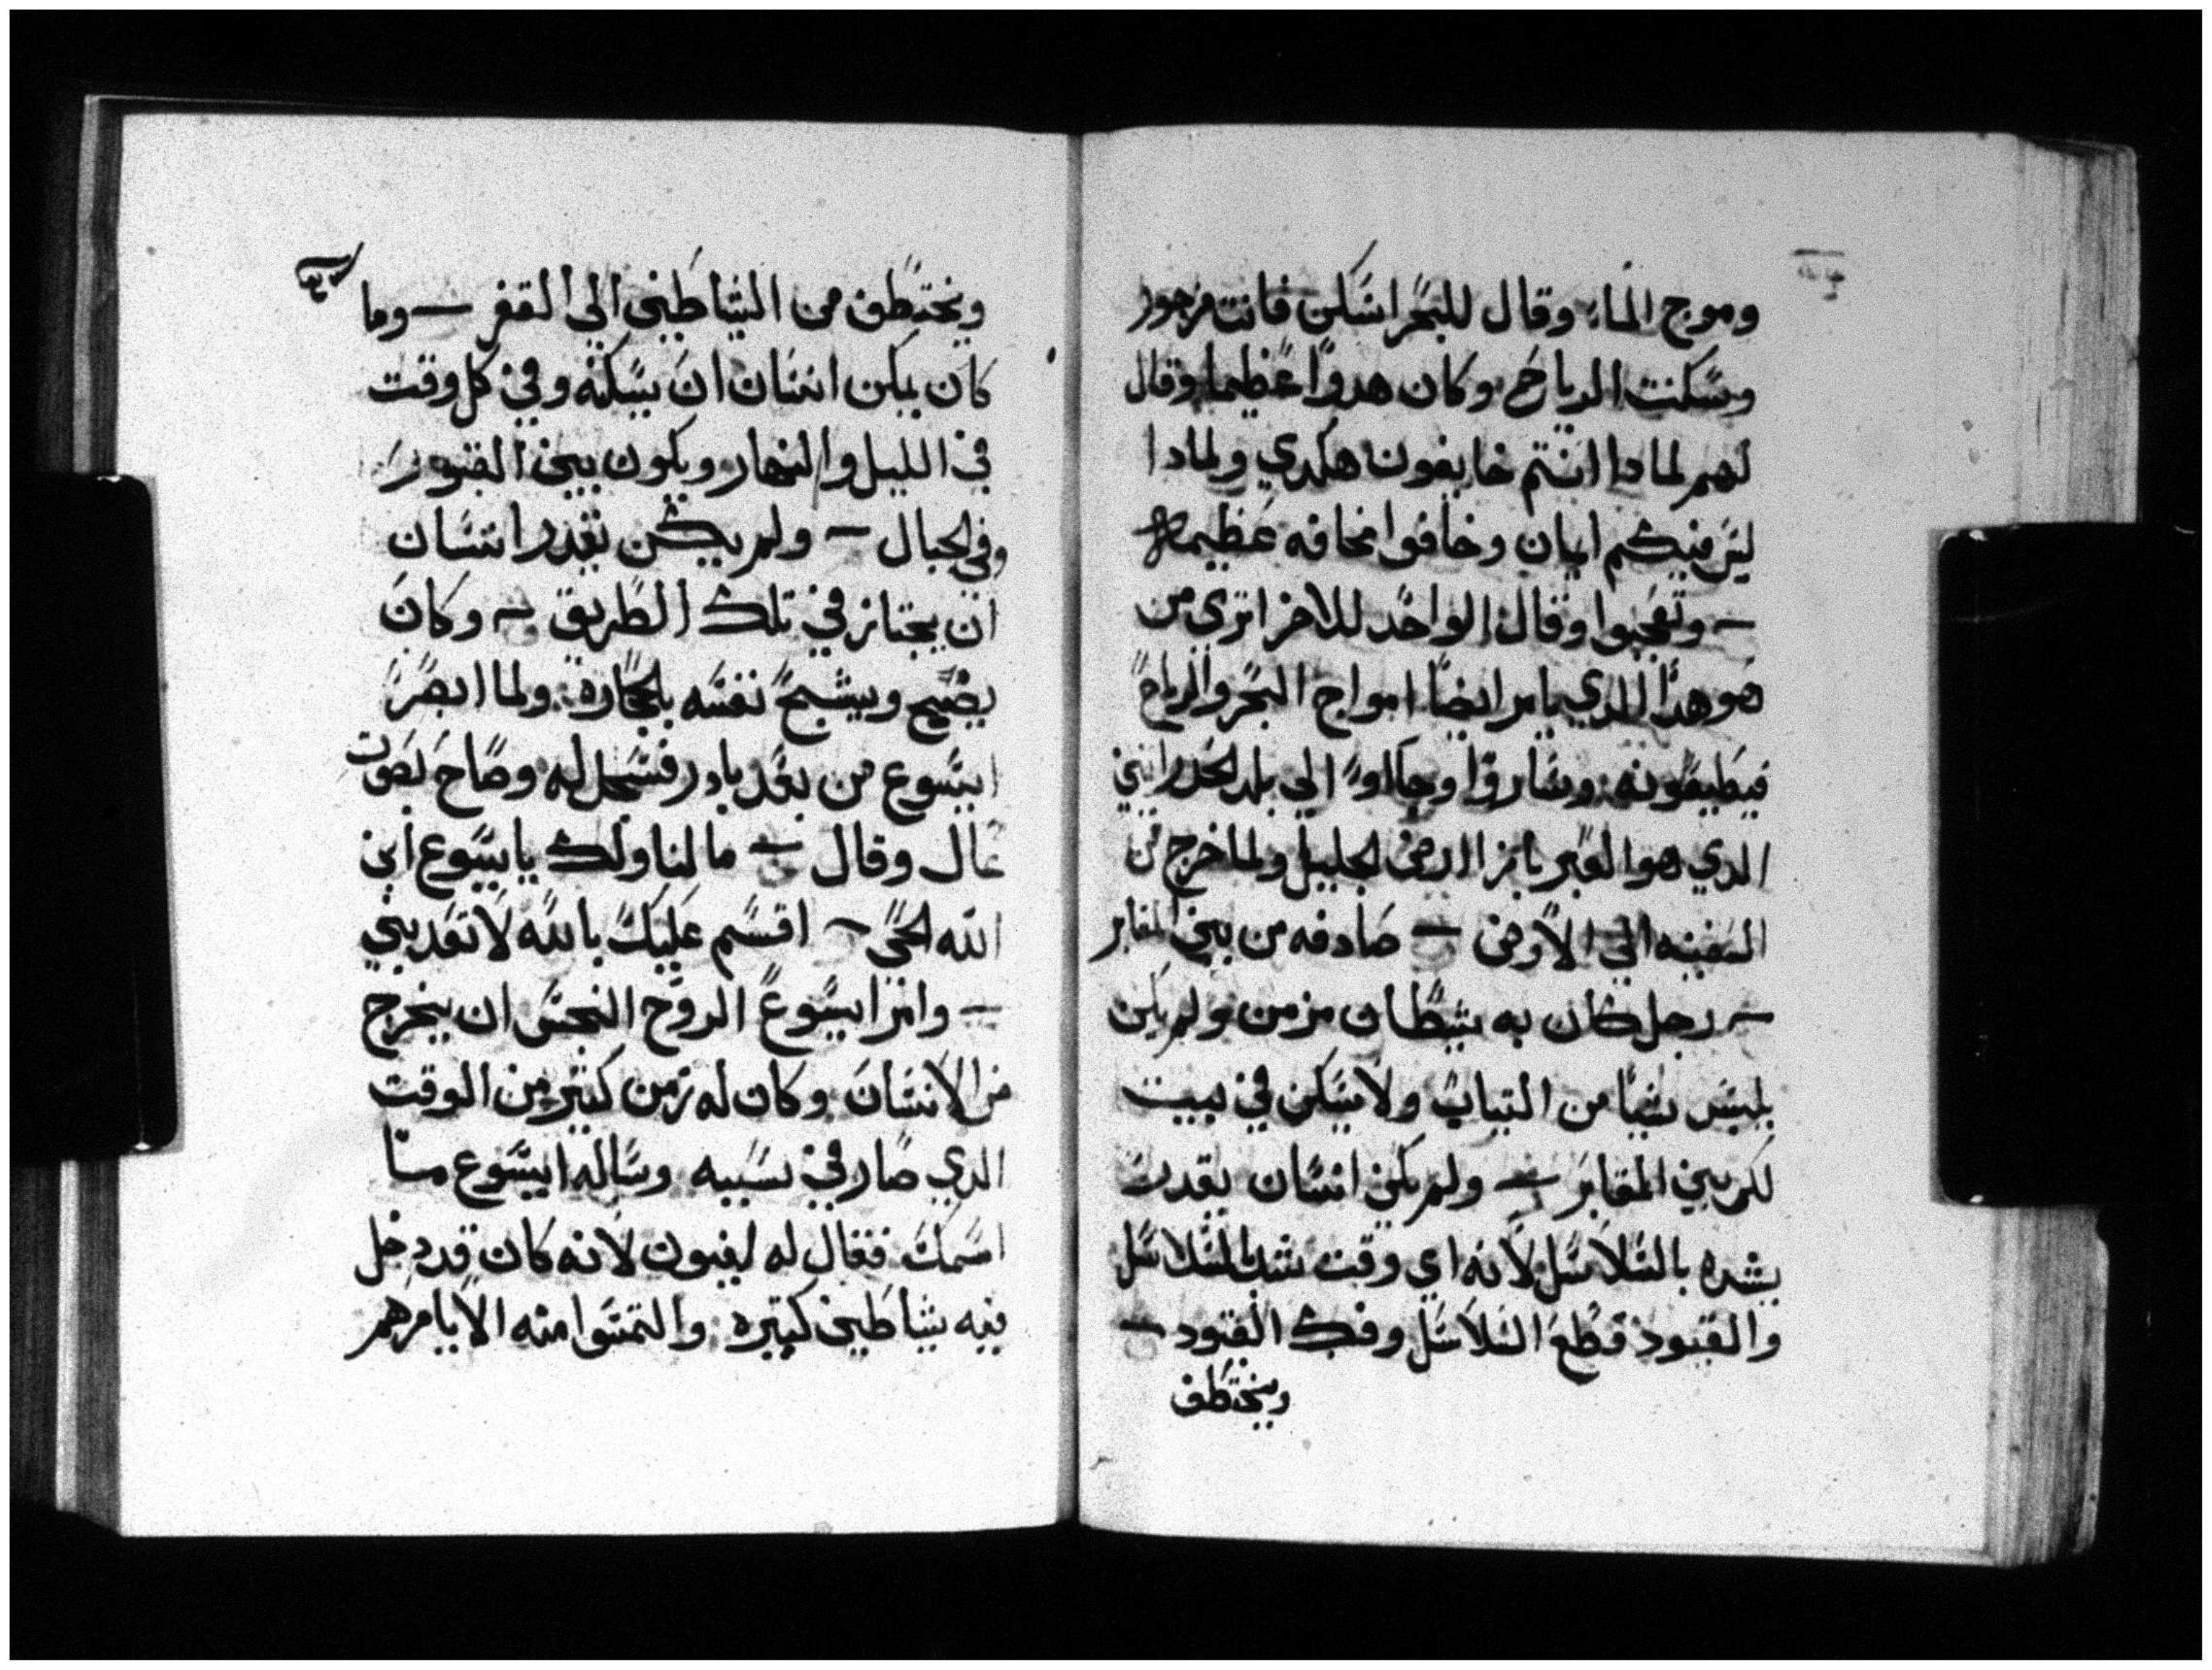 وموج الماء وقال للبحر اسكن فانت مزجور
وسكنت الرياح وكان هدوا عظيما وقال
لهم لمادا انتم خايفون هكدي ولمادا
ليس فيكم ايمان وخافوا مخافه عظيمه
وتعجبوا وقال الواحد للاخر اتري من
هو هدا الدي يامر ايضا امواج البحر والرياح
فيطيعونه وساروا وجاوا الي بلد
الدي هو العبر بازا ارض الجليل ولما خرج من
السفينه الي الارض صادفه من بين المقابر
رجل كان به شيطان مزمن ولم يكن
يلبس شيا من التياب ولا يسكن في بيت
لكن بين المقابر ولم يكن انسان يقدر
يشده بالسلاسل لانه اي وقت شد بالسلاسل
والقيود قطع السلاسل وفك القيود
ويختطف
ويختطف من الشياطين الي القفر وما
كان يمكن انسان ان يسكنه وفي كل وقت
في الليل والنهار ويكون بين القبور
وفي الجبال ولم يكن يقدر انسان
ان يجتاز في تلك الطريق وكان
يصيح ويشبح نفسه بالحجاره ولما ابصر
ايسوع من بعد بادر فسجد له وصاح بصوت
عال وقال ما لنا ولك يا يسوع ابن
الله الحي اقسم عليك بالله لا تعدبني
وامر ايسوع الروح النجس ان يخرج
من الانسان وكان له زمن كثير من الوقت
الدي صار في سببه وساله ايسوع ما
اسمك فقال له ليغيون لانه كان قد دخل
فيه شياطين كتيره والتمسوا منه الا يامرهم